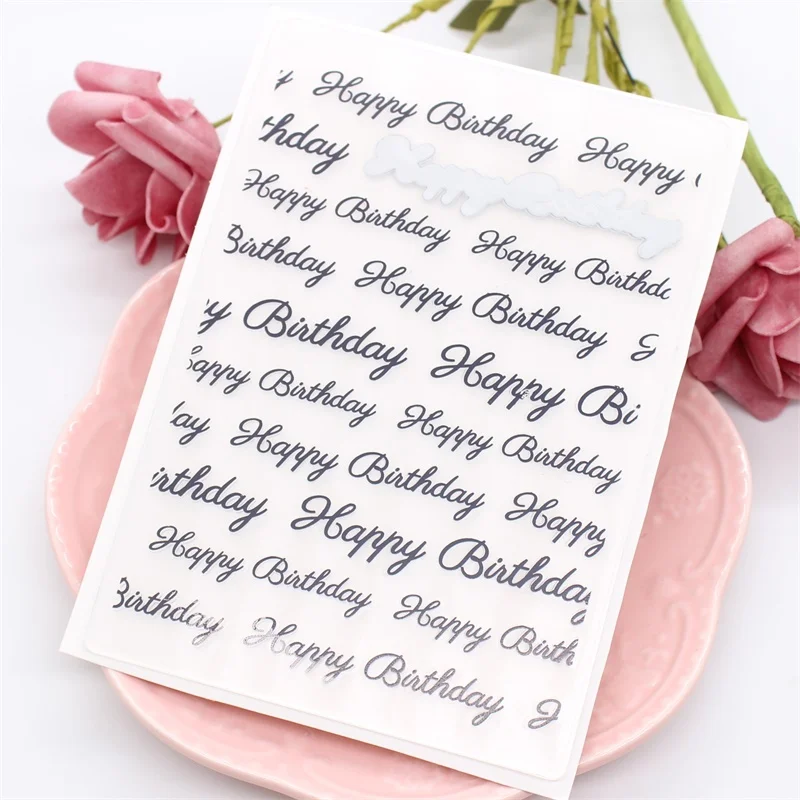 y Happy Birthday Happy
hday Happy Birthday
Happy Birthday Happy Birthda
Birthday Happy Birthday
y Birthday Happy Bi
appy Birthday Happy Birthday
ay Happy Birthday Happy
irthday Happy Birthday
Happy Birthday Happy Birth
Birthday Happy Birthday